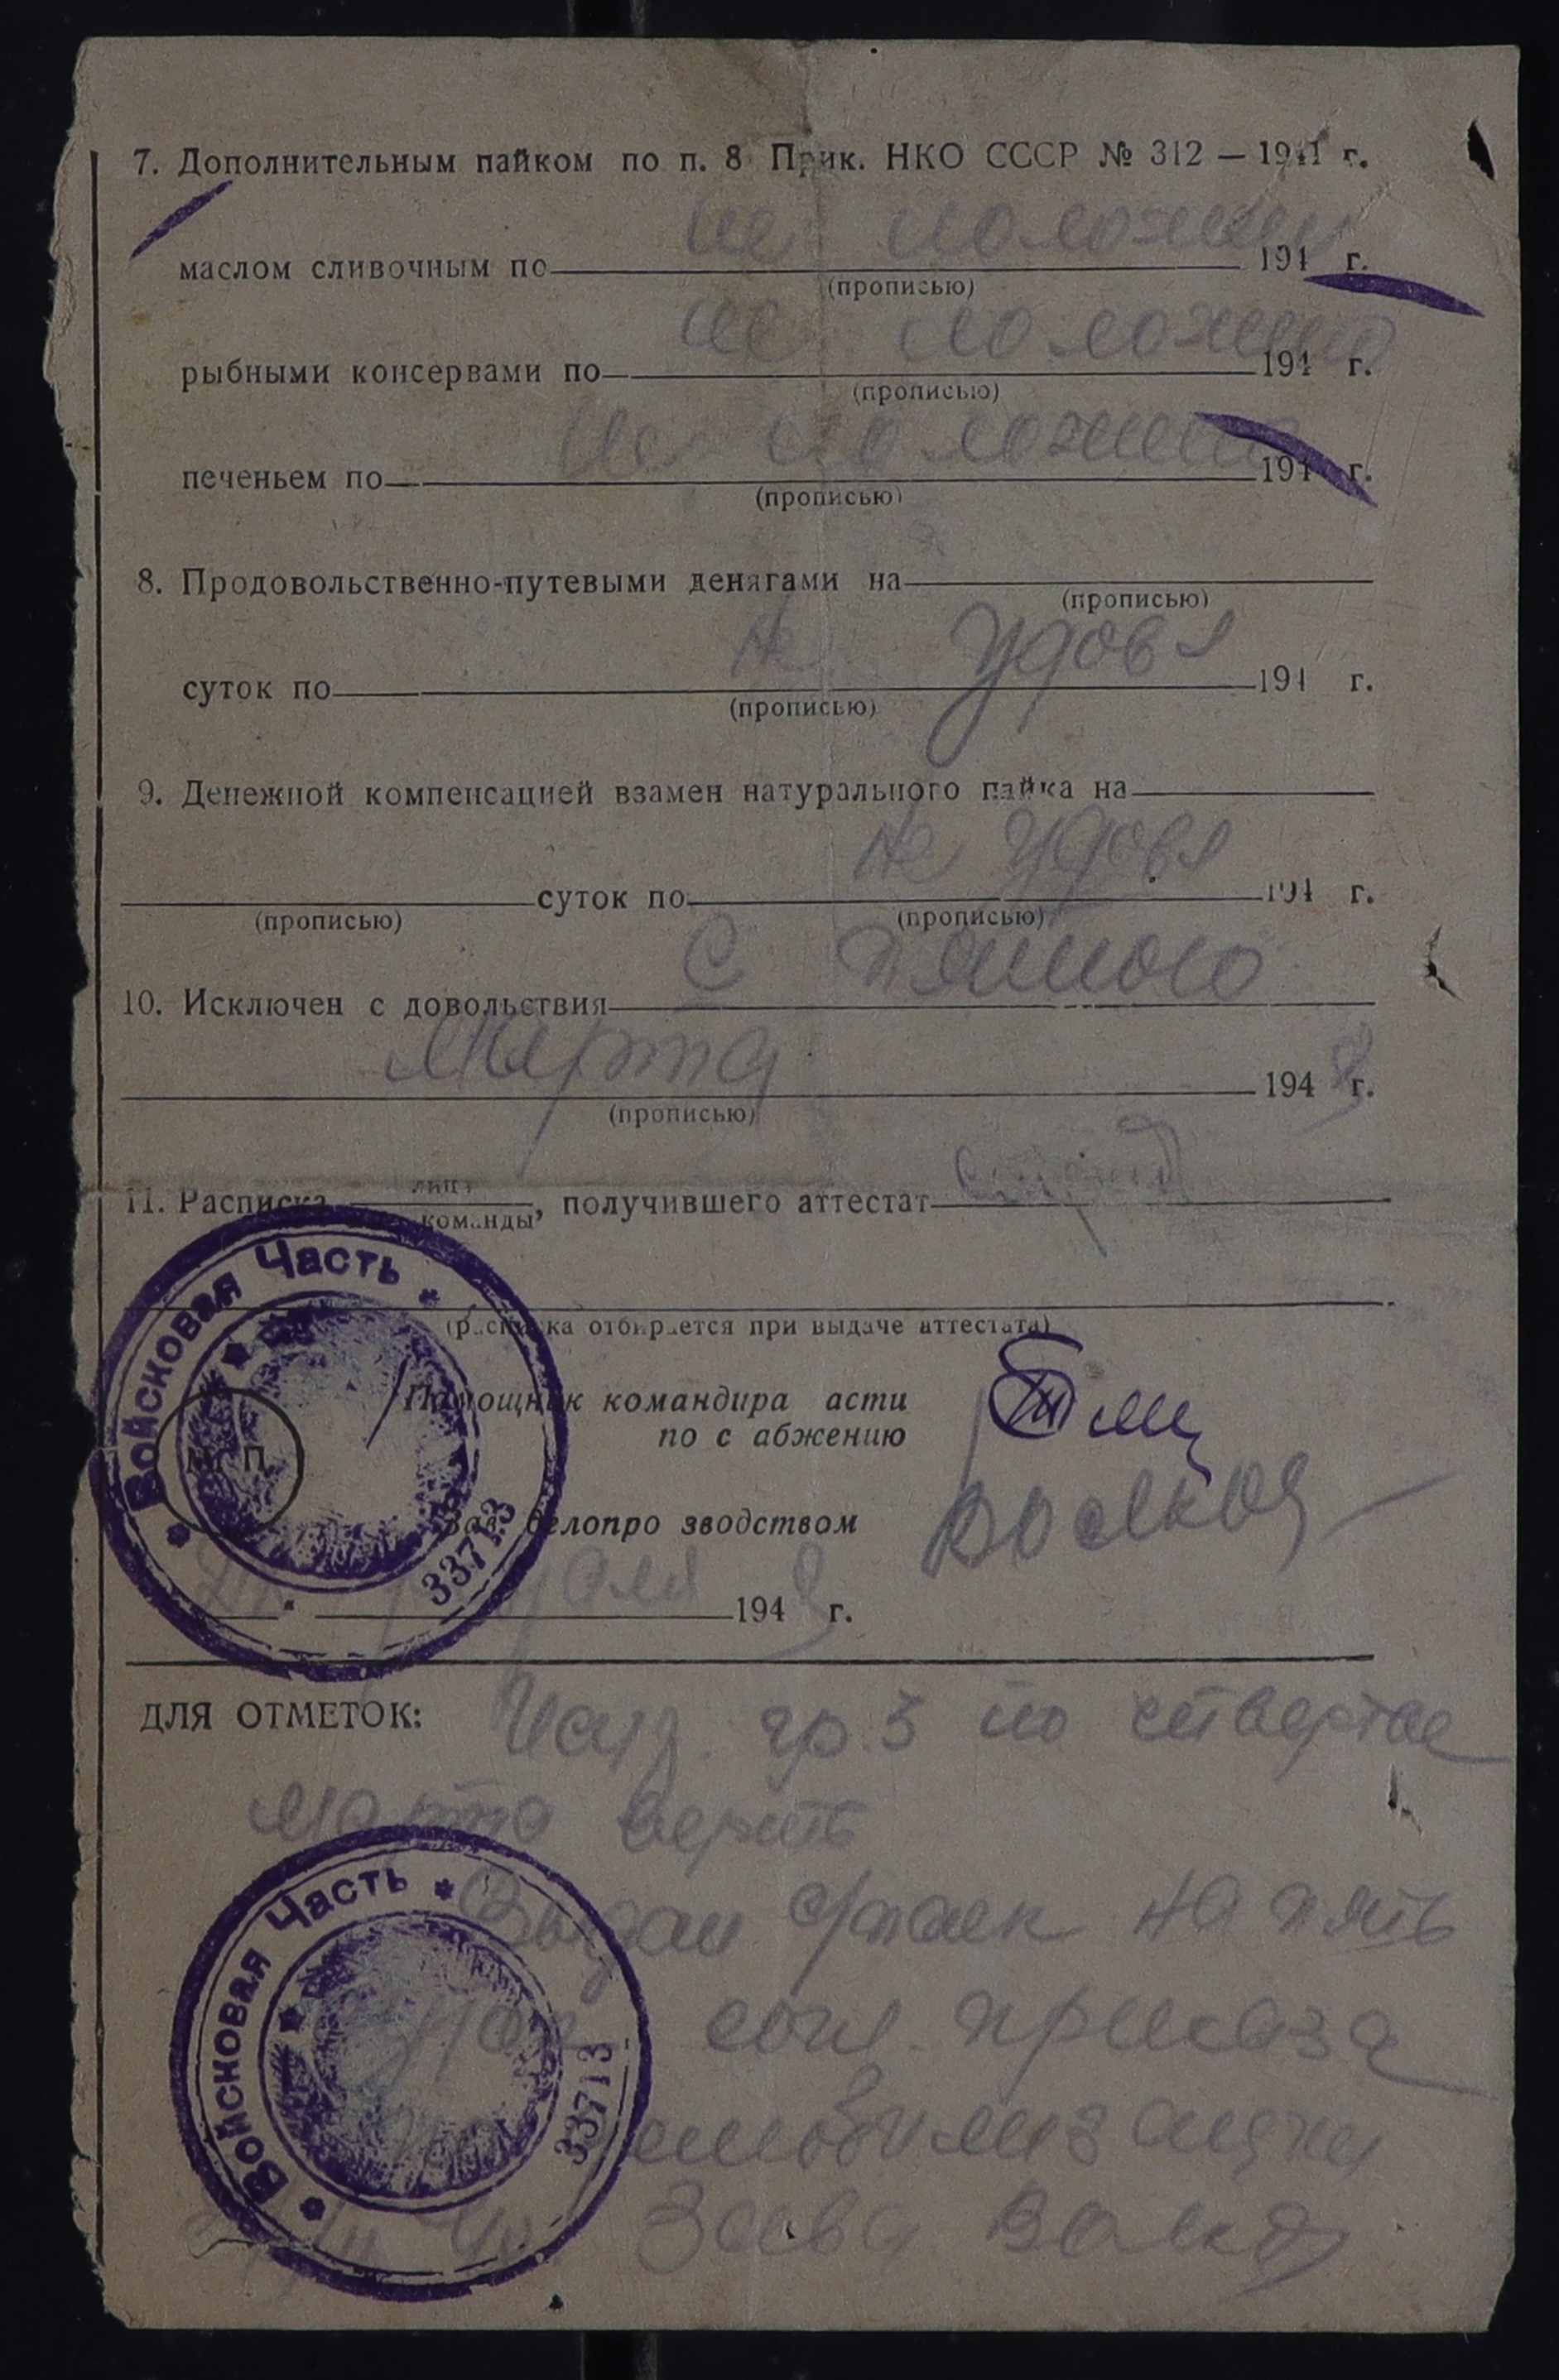 7. Дополнительным пайком по п. 8 Прик. НКО СССР № 312 — 1941 г.
не положен
маслом сливочным по 194 г.
(прописью)
не положено
рыбными консервами по 194 г.
(прописью)
не положено
печеньем по 194 г.
(прописью)
8. Продовольственно-путевыми деньгами на
(прописью)
не удовл
суток по 194 г.
(прописью)
9. Денежной компенсацией взамен натурального пайка на
не удовл
суток по 194 г.
(прописью) (прописью)
10. Исключен с довольствия с пятого
марта 194 г.
(прописью)
11. Расписка лица команды, получившего аттестат
(расписка отбирается при выдаче аттестата)
Войсковая Часть
33713
М. П.
Помощник командира асти
по с абжению
Зав. делопро зводством
194 г.
ДЛЯ ОТМЕТОК: Испр. гр. 5 по четвертое
марта верить
Выдан с/паек на пять
согл. приказа
демобилизации
Войсковая Часть
33713